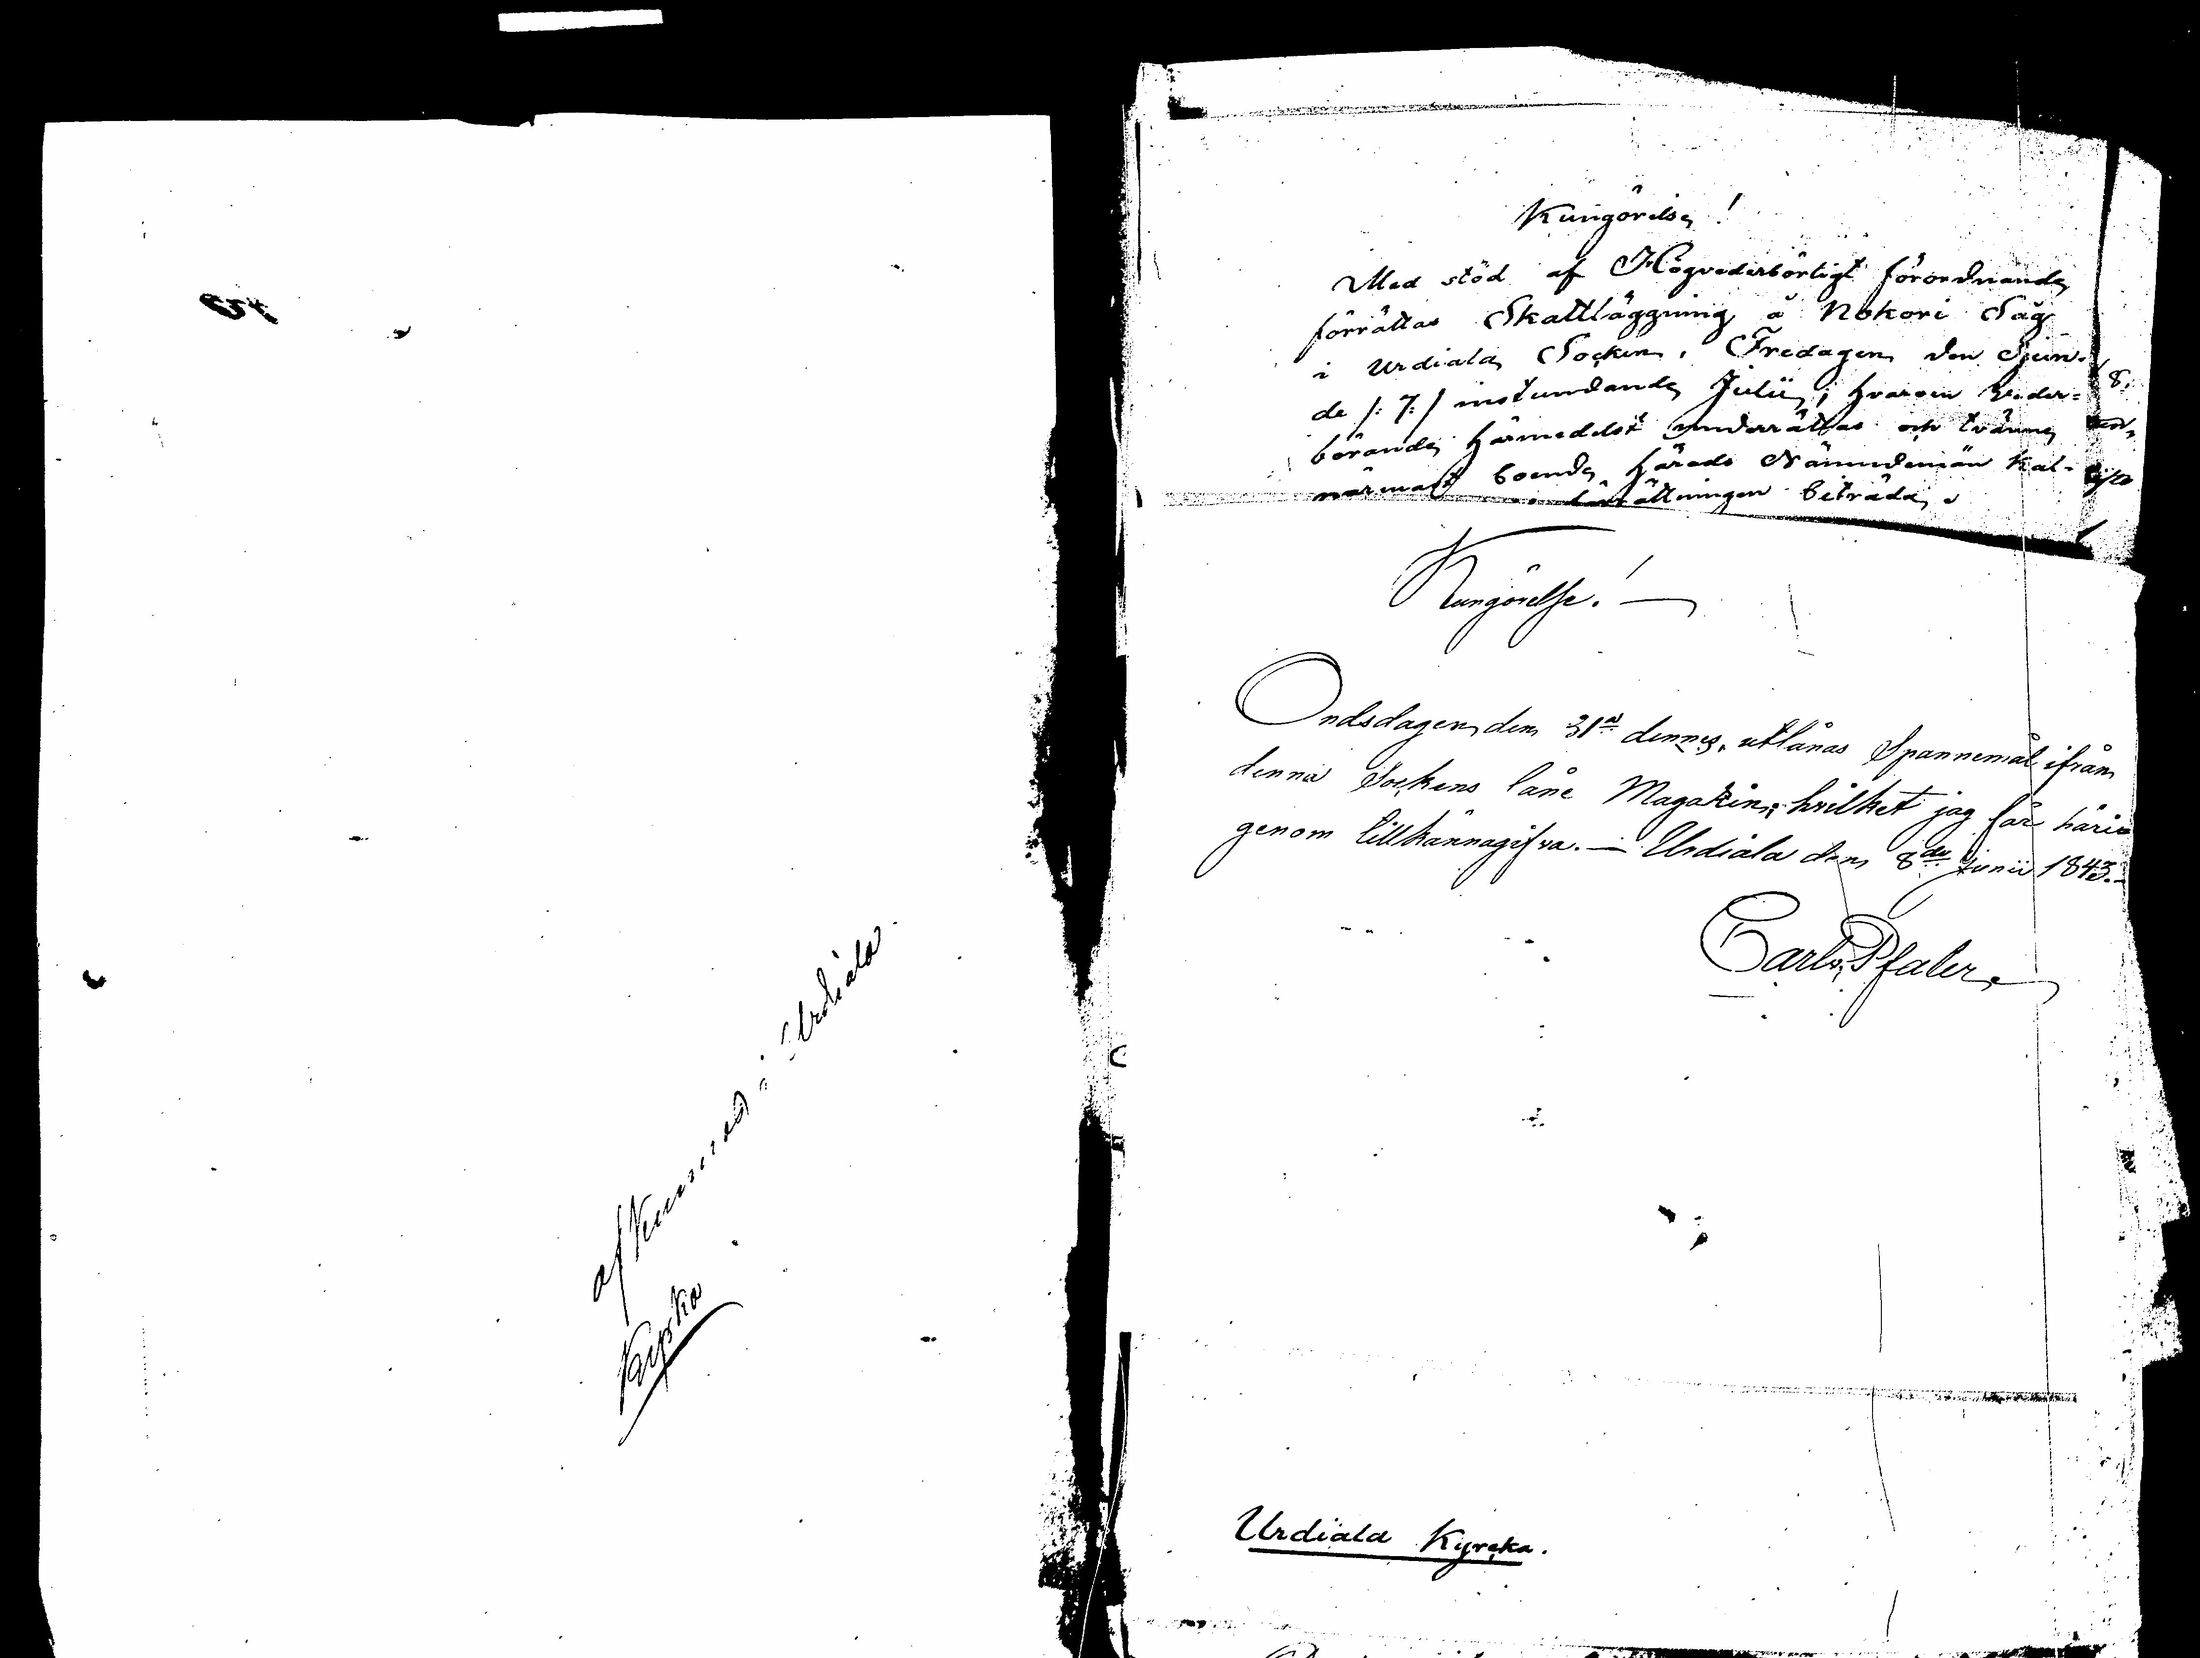 afkunnas i Urdiala
Kyrka
Kungörelse!
Med stöd af Högvederbörligt förordnande
förrättas Skattläggning å Nokori Såg
i Urdiala Socken, Fredagen den Sjun-
de /: 7: / instundande Julii, hvarom veder=
börande härmedelst underrättas och tvänne
närmast boende Härads Nämndemän kal-
förrättningen biträda.
8.
Kungörelse!
Ondsdagen den 31a dennes, utlånas Spannemål ifrån
denna Sockens låne Magazin; hvilket jag får häri
genom tillkännagifva. — Urdiala den 8de Junii 1843.
Carl v. Pfaler
Urdiala Kyrcka.